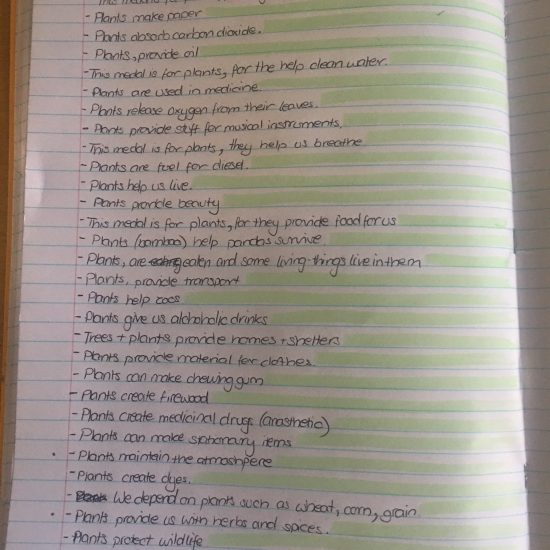 This medal is for p
- Plants make paper
- Plants absorb carbon dioxide.
- Plants, provide oil
- This medal is for plants, for the help clean water.
- Plants are used in medicine.
- Plants release oxygen from their leaves.
- Plants provide stuff for musical instruments.
- This medal is for plants, they help us breathe
- Plants are fuel for diesel.
- Plants help us live.
- Plants provide beauty
- This medal is for plants, for they provide food for us
- Plants (bamboo) help pandas survive.
- Plants, are eaten and some living things live in them
- Plants, provide transport
- Plants help zoos
- Plants give us alchoholic drinks
- Trees + plants provide homes + shelters
- Plants provide material for clothes.
- Plants can make chewing gum
- Plants create firewood
- Plants create medicinal drugs (anasthetic)
- Plants can make stationary items
- Plants maintain the atmoshpere
- Plants create dyes.
- We depend on plants such as wheat, corn, grain
- Plants provide us with herbs and spices.
- Plants protect wildlife